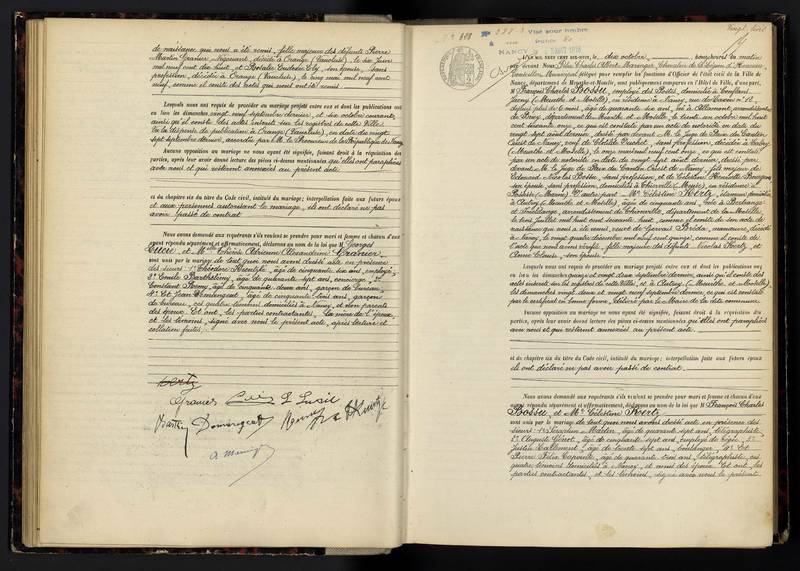 de naissance qui nous a été remis, fille majeure des défunts Pierre
Martin Granier, négociant, décédé à Orange (Vaucluse), le six juin
mil neuf cent dix huit, et Rosalie son épouse, sans
profession, décédée à Orange (Vaucluse), le cinq mai mil neuf cent
neuf, comme il conste des actes qui nous ont été remis
Lesquels nous ont requis de procéder au mariage projeté entre eux et dont les publications ont
eu lieu les dimanches vingt neuf septembre dernier, et six octobre courant,
ainsi qu'il conste des actes insérés sur les registres de cette Ville.
Vu la dispense de publication à Orange (Vaucluse), en date du vingt
sept septembre dernier, accordée par M. le Procureur de la République de Nancy
Aucune opposition au mariage ne nous ayant été signifiée, faisant droit à la réquisition des
parties, après leur avoir donné lecture des pièces ci-dessus mentionnées qu'elles ont paraphées
avec nous et qui resteront annexées au présent acte.
et du chapitre six du titre du Code civil, intitulé du mariage; interpellation faite aux futurs époux
et aux personnes autorisant le mariage, ils ont déclaré ne pas
avoir passé de contrat
Nous avons demandé aux requérants s'ils veulent se prendre pour mari et femme et chacun d'eux
ayant répondu séparément et affirmativement, déclarons au nom de la loi que M Georges
et Mlle Thérèse Adrienne Alexandrine Granier
sont unis par le mariage de tout quoi nous avons dressé acte en présence
des sieurs: 1° Théodore Kuentz, âgé de cinquante six ans, employé;
2° Emile Barthélemy, âgé de quarante sept ans, concierge; 3°
Constant Remy, âgé de cinquante deux ans, garçon de bureau;
4° Et Jean Domingeat, âgé de cinquante trois ans, garçon
de bureau, ces quatre témoins domiciliés à Nancy, et non parents
des époux. Et ont, les parties contractantes, la mère de l'époux,
et les témoins, signé avec nous le présent acte, après lecture et
collation faites.
Granier
Visé pour timbre
NANCY
Août 1918
L'an mil neuf cent dix-huit, le dix octobre, à onze heures du matin,
par devant Nous Félix Charles Albert Chevalier de la Légion d'Honneur,
Conseiller Municipal délégué pour remplir les fonctions d'Officier de l'état civil de la Ville de
Nancy, département de Meurthe-et-Moselle, sont publiquement comparus en l'Hôtel de Ville, d'une part,
M François Charles Bossu, employé des Postes, domicilié à Conflans
Jarny (Meurthe et Moselle), en résidence à Nancy, rue de
depuis plus de six mois, âgé de quarante six ans, né à arrondissement
de Briey, département de Meurthe et Moselle, le trente un octobre mil huit
cent soixante onze, ce qui est constaté par un acte de notoriété en date du
vingt sept août dernier, dressé par devant M. le Juge de Paix du Canton
Ouest de Nancy, veuf de Clotilde sans profession, décédée à
(Meurthe et Moselle), le onze mai mil neuf cent onze, ce qui est constaté
par un acte de notoriété en date du vingt sept août dernier, dressé par
devant M. le Juge de Paix du Canton Ouest de Nancy, fils majeur de
Edouard Nicolas Bossu, sans profession, et de Célestine Henriette
son épouse, sans profession, domiciliés à Thierville (Meuse), en résidence à
(Marne). D'autre part: Mme Célestine Kertz, domiciliée
à (Meurthe et Moselle), âgée de cinquante ans, née à Bertrange
et Imeldange, arrondissement de Thionville, département de la Moselle,
le trois juillet mil huit cent soixante huit, comme il conste de son acte de
naissance qui nous a été remis, veuve de Gervail Bréda, manœuvre, décédé
à Nancy, le vingt quatre décembre mil neuf cent quinze, comme il conste de
l'acte qui nous a été remis, fille majeure des défunts Nicolas Kertz, et
Anne son épouse.
Lesquels nous ont requis de procéder au mariage projeté entre eux et dont les publications ont
eu lieu les dimanches quinze et vingt deux septembre dernier, ainsi qu'il conste des
actes insérés sur les registres de cette Ville; et à (Meurthe et Moselle),
les dimanches vingt deux et vingt neuf septembre dernier, ce qui est constaté
par le certificat en bonne forme, délivré par le Maire de la dite commune.
Aucune opposition au mariage ne nous ayant été signifiée, faisant droit à la réquisition des
parties, après leur avoir donné lecture des pièces ci-dessus mentionnées qu'elles ont paraphées
avec nous et qui resteront annexées au présent acte.
et du chapitre six du titre du Code civil, intitulé du mariage; interpellation faite aux futurs époux
ils ont déclaré ne pas avoir passé de contrat.
Nous avons demandé aux requérants s'ils veulent se prendre pour mari et femme et chacun d'eux
ayant répondu séparément et affirmativement, déclarons au nom de la loi que M François Charles
Bossu, et Mme Célestine Kertz
sont unis par le mariage de tout quoi nous avons dressé acte en présence des
sieurs: 1° Séraphin Martin, âgé de quarante sept ans, télégraphiste;
2° Auguste âgé de cinquante sept ans, employé de 3°
Justin Lallement, âgé de trente sept ans, boulanger; 4° Et
Pierre Félix âgé de quarante trois ans, télégraphiste, ces
quatre témoins domiciliés à Nancy, et amis des époux. Et ont les
parties contractantes, et les témoins, signé avec nous le présent